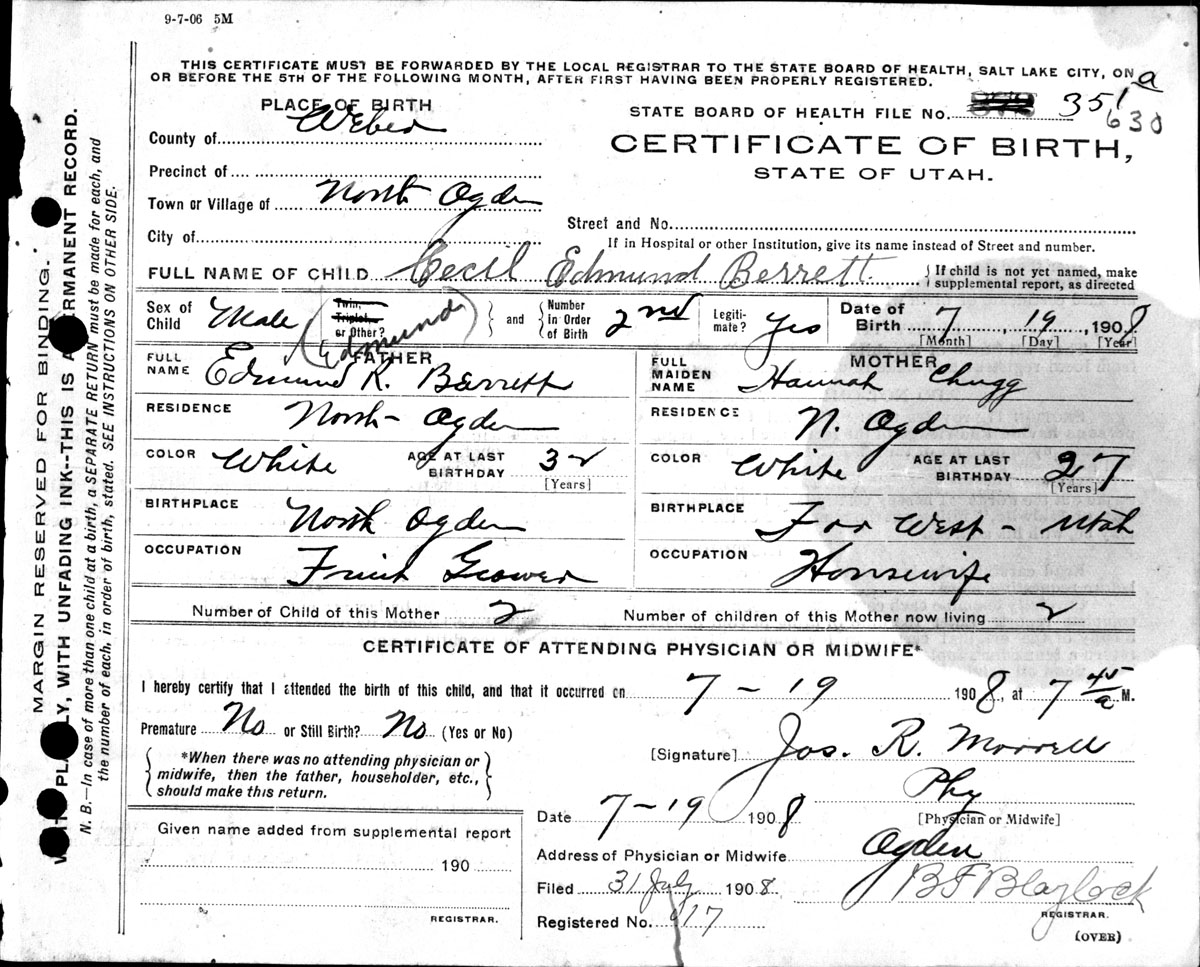 9-7-06 5M
THIS CERTIFICATE MUST BE FORWARDED BY THE LOCAL REGISTRAR TO THE STATE BOARD OF HEALTH, SALT LAKE CITY, ON
OR BEFORE THE 5TH OF THE FOLLOWING MONTH, AFTER FIRST HAVING BEEN PROPERLY REGISTERED.
PLACE OF BIRTH
County of Weber
Precinct of
Town or Village of North Ogden
City of
STATE BOARD OF HEALTH FILE NO. 351 a
630
CERTIFICATE OF BIRTH,
STATE OF UTAH.
Street and No.
If in Hospital or other Institution, give its name instead of Street and number.
FULL NAME OF CHILD Cecil Edmund Berrett
If child is not yet named, make
supplemental report, as directed
Sex of Child Male
Twin, Triplet, or Other? (Edmund)
and Number in Order of Birth 2nd
Legiti-mate? Yes
Date of Birth 7, 19, 1908
[Month] [Day] [Year]
FATHER
FULL NAME Edmund R. Berrett
RESIDENCE North Ogden
COLOR White AGE AT LAST BIRTHDAY 32
[Years]
BIRTHPLACE North Ogden
OCCUPATION Fruit Grower
MOTHER
FULL MAIDEN NAME Hannah Chugg
RESIDENCE N. Ogden
COLOR White AGE AT LAST BIRTHDAY 27
[Years]
BIRTHPLACE Farr West - Utah
OCCUPATION Housewife
Number of Child of this Mother 2 Number of children of this Mother now living 2
CERTIFICATE OF ATTENDING PHYSICIAN OR MIDWIFE*
I hereby certify that I attended the birth of this child, and that it occurred on 7-19 1908, at 7 45 a M.
Premature No or Still Birth? No (Yes or No)
*When there was no attending physician or
midwife, then the father, householder, etc.,
should make this return.
[Signature] Jos. R. Morrell
Phy
[Physician or Midwife]
Date 7-19 1908
Address of Physician or Midwife Ogden
Filed 31 July 1908 B F Blaylock
REGISTRAR.
Registered No. 117
(OVER)
Given name added from supplemental report
190
REGISTRAR.
MARGIN RESERVED FOR BINDING.
PLAINLY, WITH UNFADING INK--THIS IS A PERMANENT RECORD.
N. B.—In case of more than one child at a birth, a SEPARATE RETURN must be made for each, and
the number of each, in order of birth, stated. SEE INSTRUCTIONS ON OTHER SIDE.